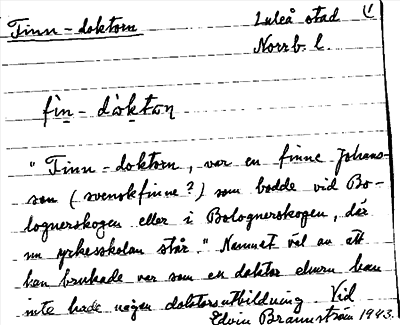 Finn-doktorn
Luleå stad
Norrb. l.
fìn-dòktoɳ
"Finn-doktorn, var en finne Johans-
son (svenskfinne?) som bodde vid Bo-
lognerskogen eller i Bolognerskogen, där
nu yrkesskolan står." Namnet val av att
han brukade var som en doktor ehuru han
inte hade någon doktorsutbildning. Vid
Edvin Brännström 1943.